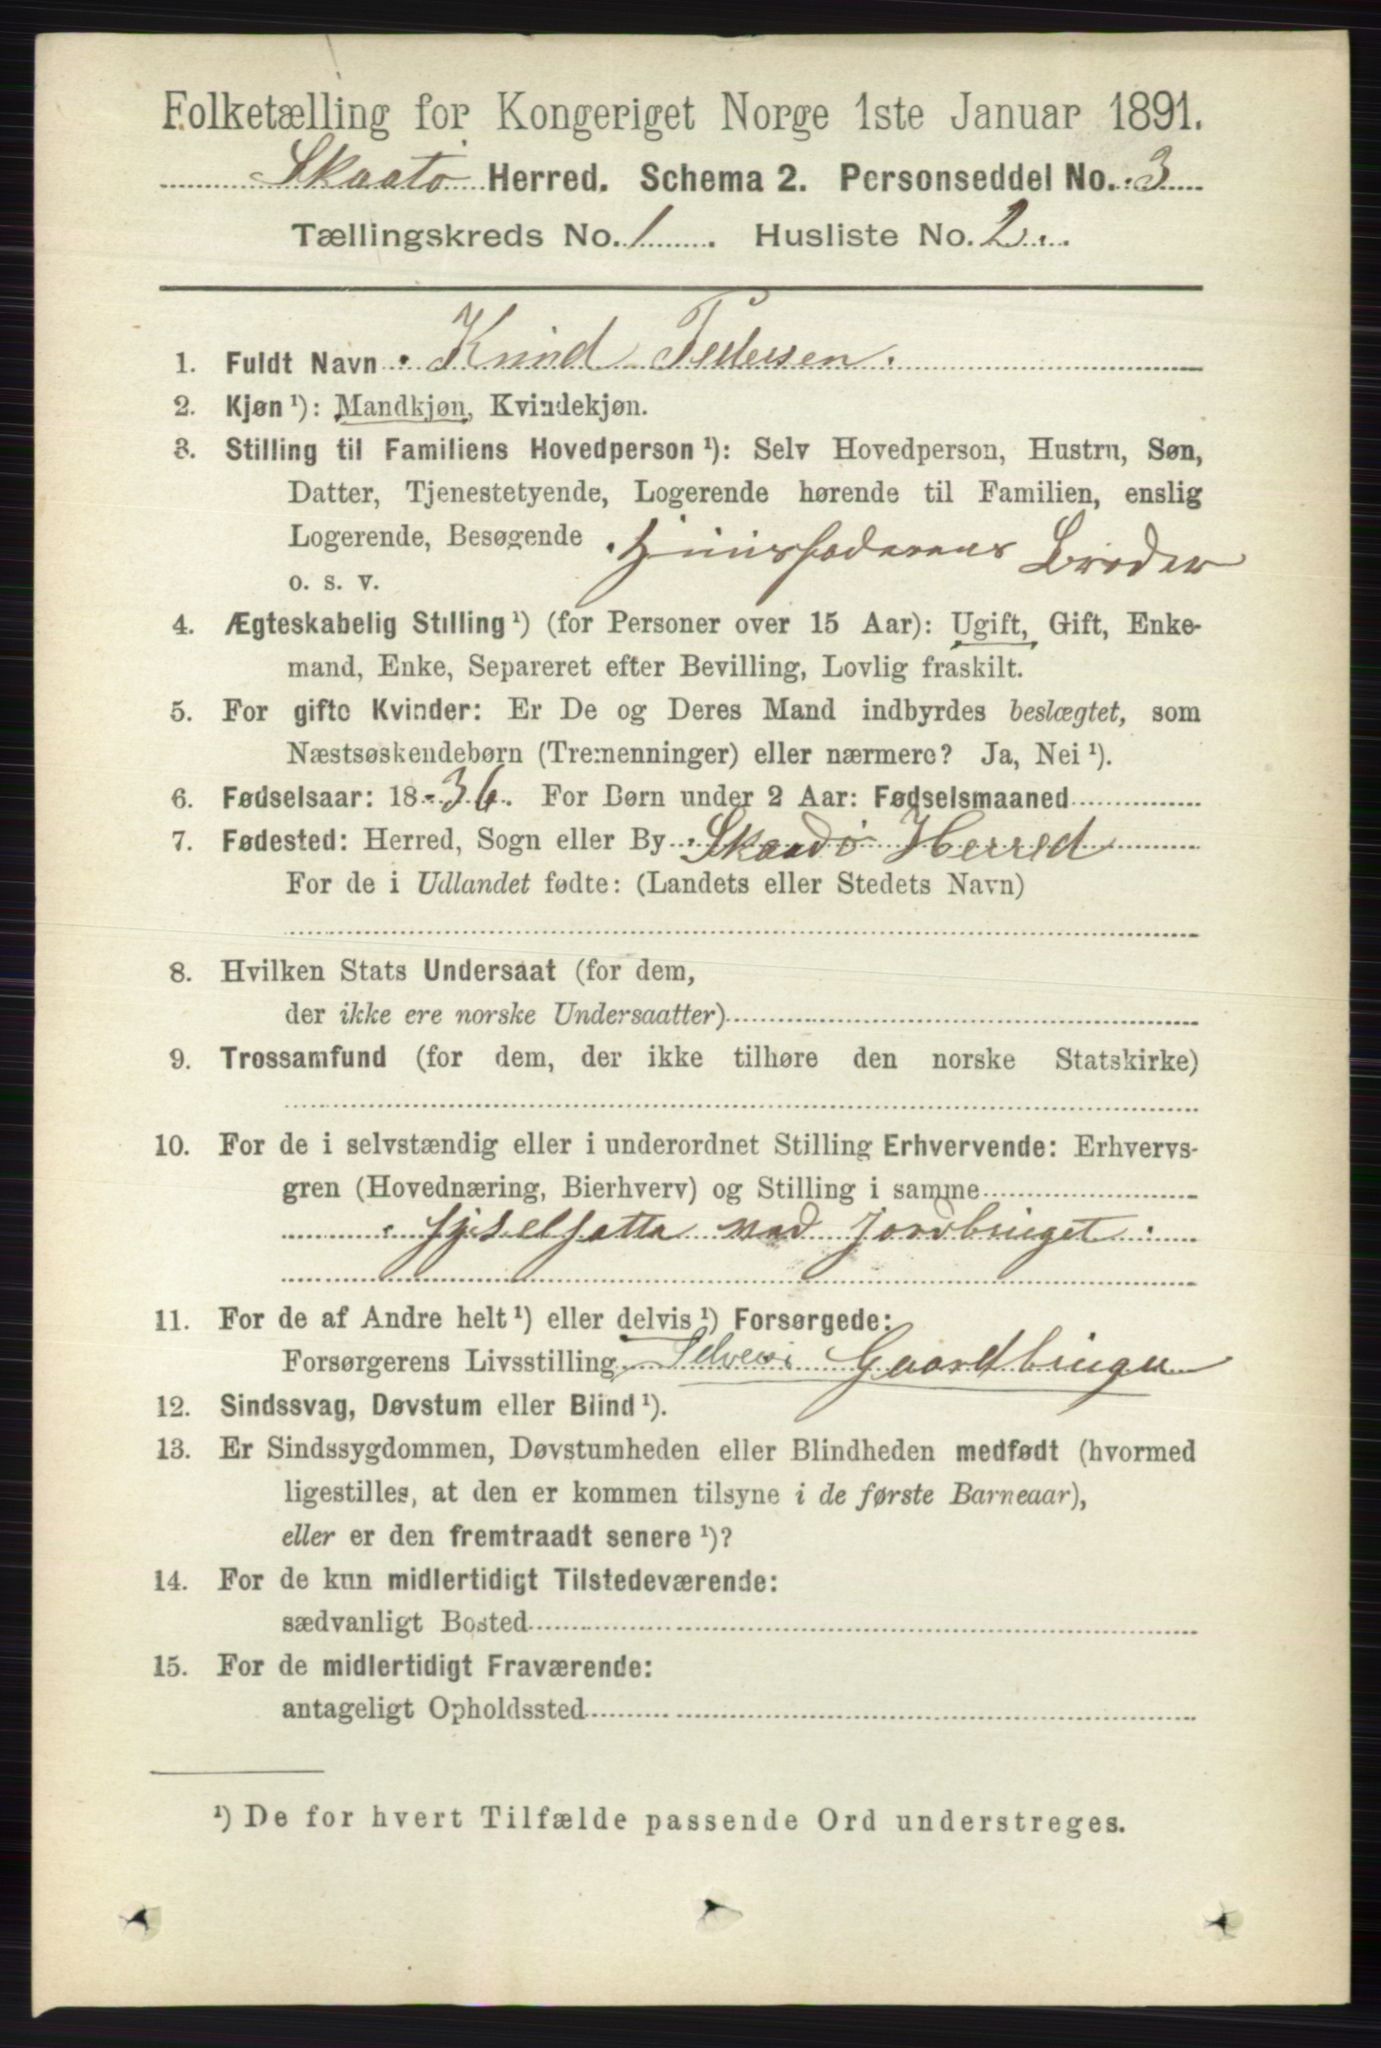 Folketælling for Kongeriget Norge 1ste Januar 1891.
Skaatø Herred. Schema 2. Personseddel No. 3
Tællingskreds No. 1. Husliste No. 2.
1. Fuldt Navn Knud Pedersen.
2. Kjøn ¹): Mandkjøn, Kvindekjøn.
3. Stilling til Familiens Hovedperson ¹): Selv Hovedperson, Hustru, Søn,
Datter, Tjenestetyende, Logerende hørende til Familien, enslig
Logerende, Besøgende Huusfaderens Broder
o. s. v.
4. Ægteskabelig Stilling ¹) (for Personer over 15 Aar): Ugift, Gift, Enke-
mand, Enke, Separeret efter Bevilling, Lovlig fraskilt.
5. For gifte Kvinder: Er De og Deres Mand indbyrdes beslægtet, som
Næstsøskendebørn (Tremenninger) eller nærmere? Ja, Nei ¹).
6. Fødselsaar: 1836. For Børn under 2 Aar: Fødselsmaaned
7. Fødested: Herred, Sogn eller By Skaadø Herred
For de i Udlandet fødte: (Landets eller Stedets Navn)
8. Hvilken Stats Undersaat (for dem,
der ikke ere norske Undersaatter)
9. Trossamfund (for dem, der ikke tilhøre den norske Statskirke)
10. For de i selvstændig eller i underordnet Stilling Erhvervende: Erhvervs-
gren (Hovednæring, Bierhverv) og Stilling i samme
med Jordbruget
11. For de af Andre helt ¹) eller delvis ¹) Forsørgede:
Forsørgerens Livsstilling Gaardbruger
12. Sindssvag, Døvstum eller Blind ¹).
13. Er Sindssygdommen, Døvstumheden eller Blindheden medfødt (hvormed
ligestilles, at den er kommen tilsyne i de første Barneaar),
eller er den fremtraadt senere ¹)?
14. For de kun midlertidigt Tilstedeværende:
sædvanligt Bosted
15. For de midlertidigt Fraværende:
antageligt Opholdssted
¹) De for hvert Tilfælde passende Ord understreges.